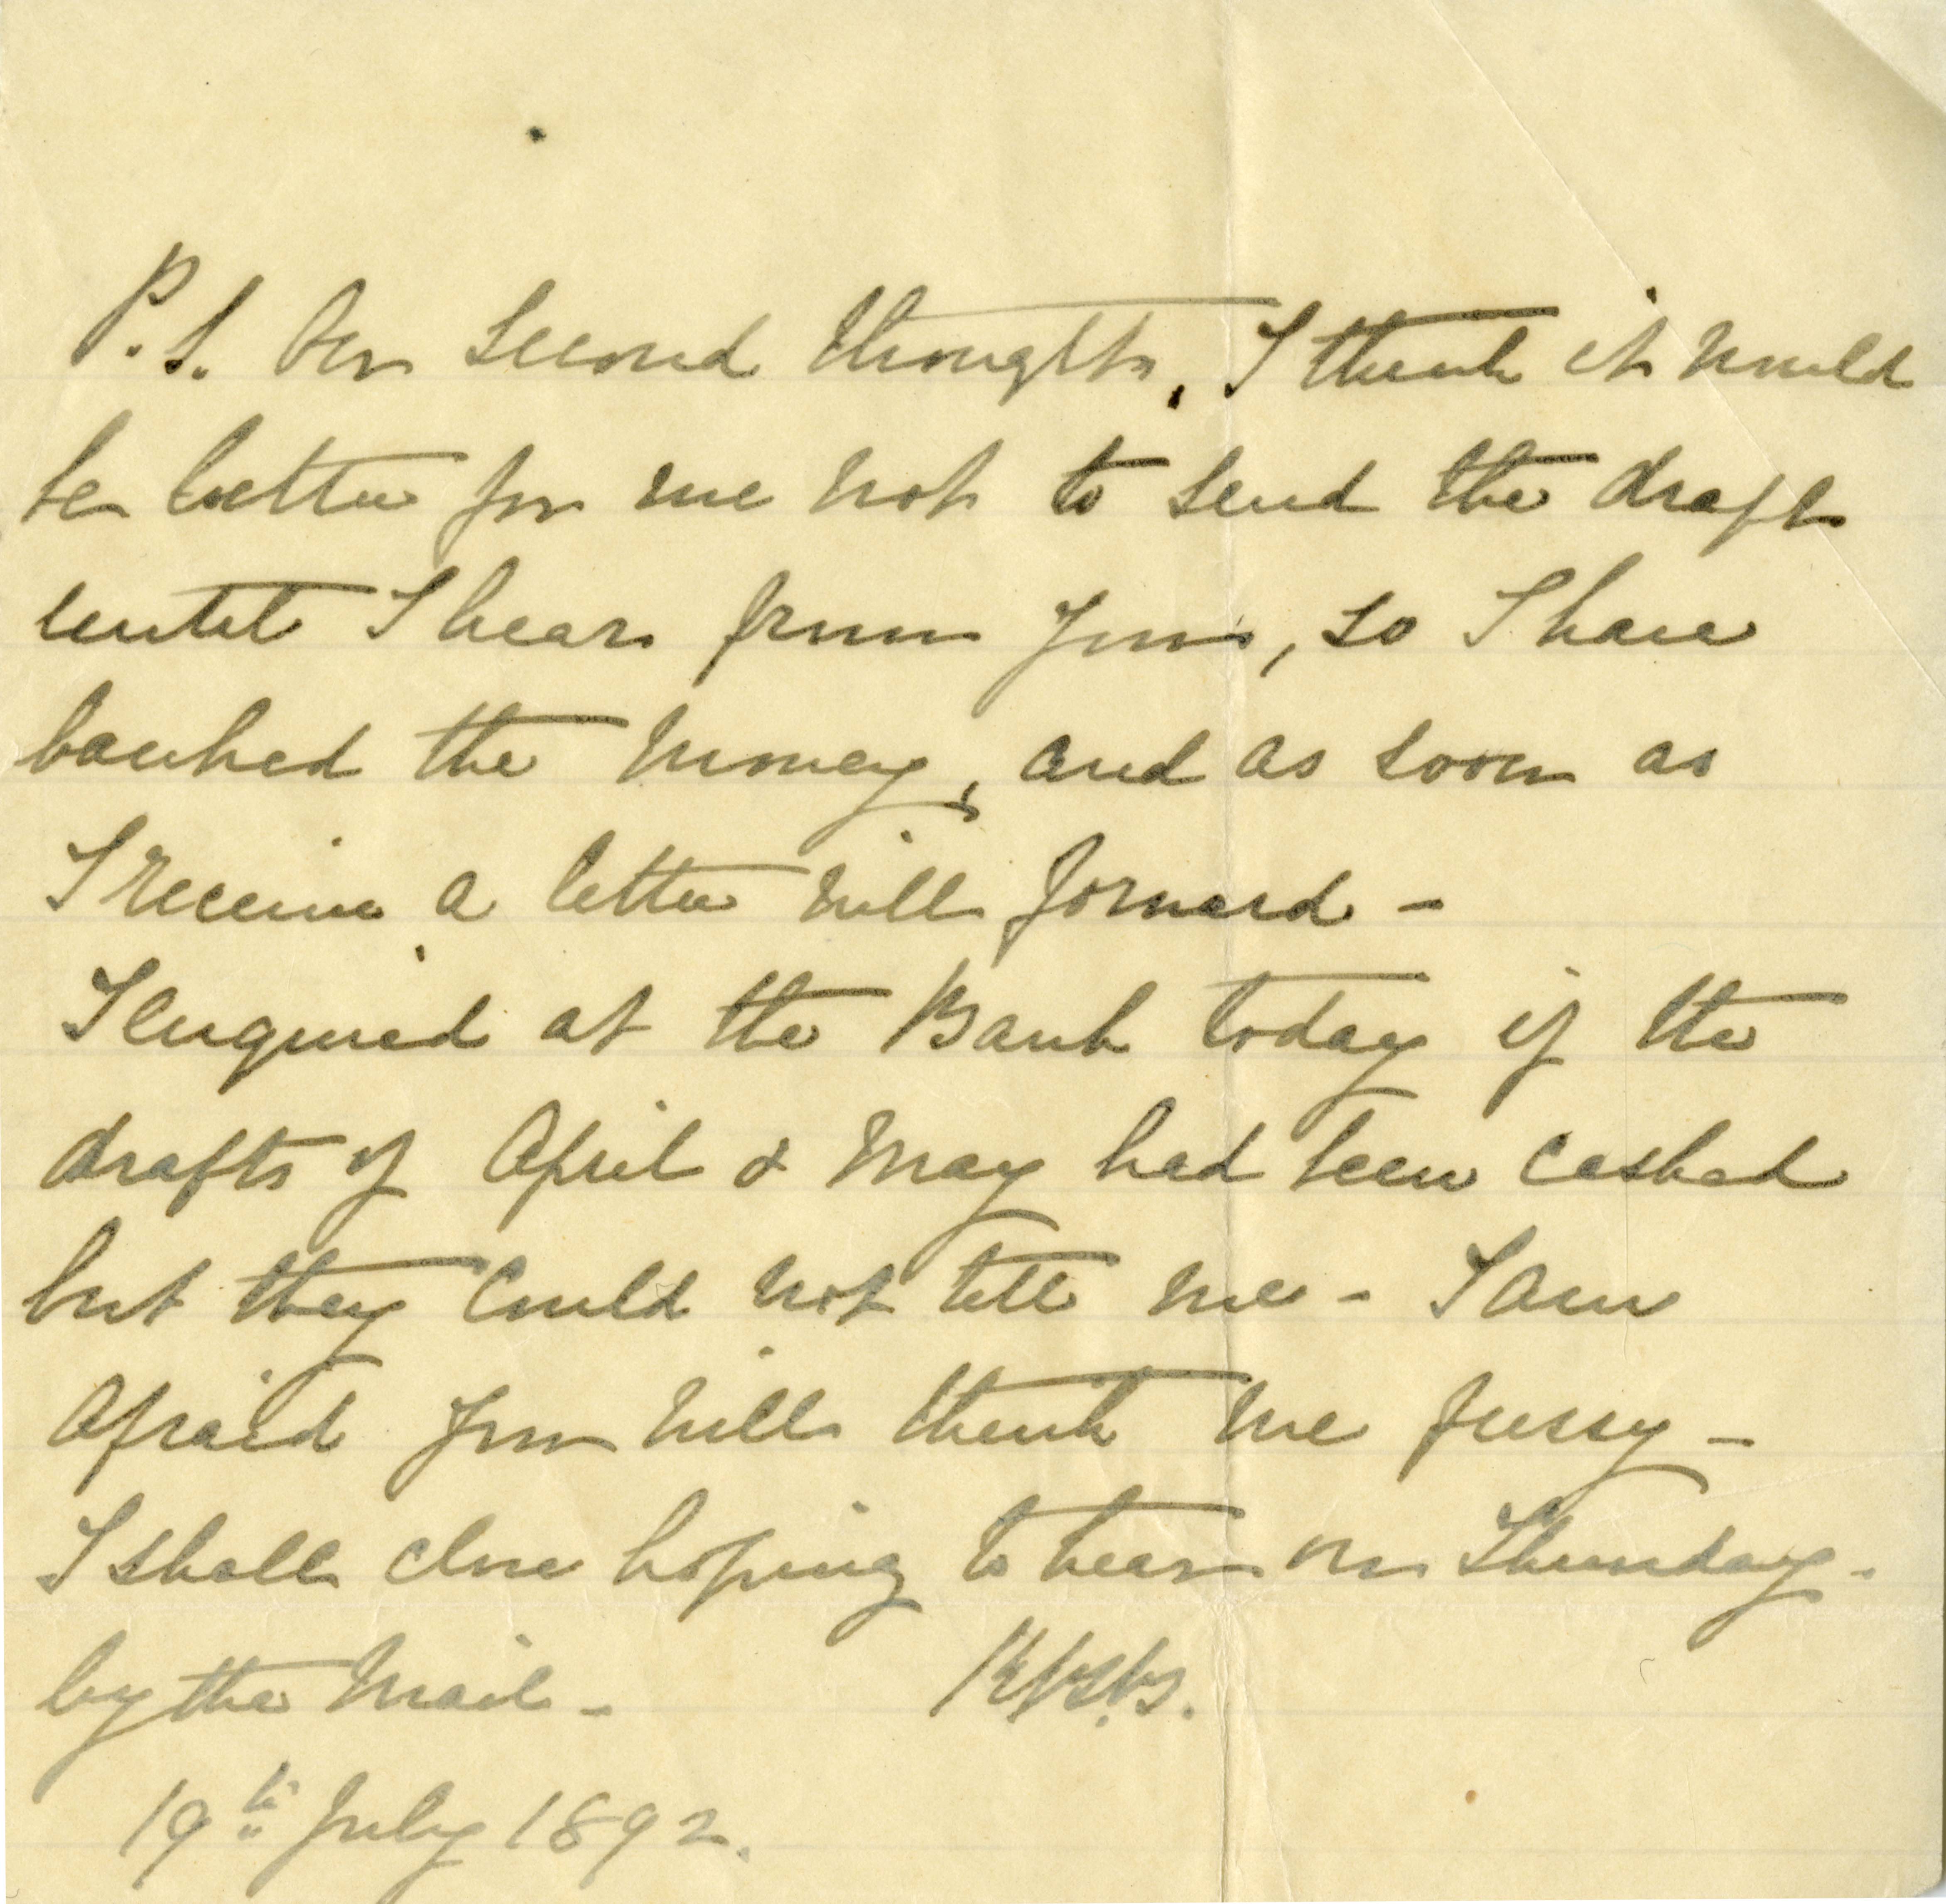 P.S. On second thoughts, I think it would
be better for me not to send the draft
until I hear from you, so I have
banked the money, and as soon as
I receive a letter will forward -
I enquired at the Bank today if the
drafts of April & May had been cashed
but they could not tell me - I am
afraid you will think me fussy -
I shall close hoping to hear on Thursday -
by the Mail -
19th July 1892.